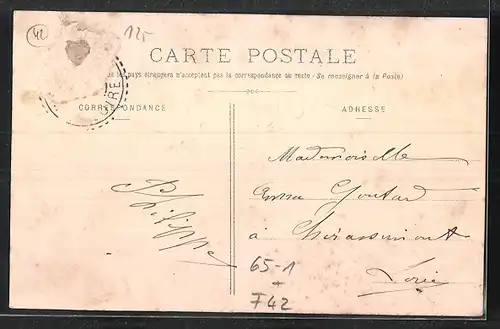 42
12f
CARTE POSTALE
les pays étrangers n'acceptent pas la correspondance au recto (Se renseigner à la Poste)
OIRE
CORRESPONDANCE
ADRESSE
Mademoiselle
Emma Goutard
à Chirassimont
Loire
Philippe
65-1
+
F42